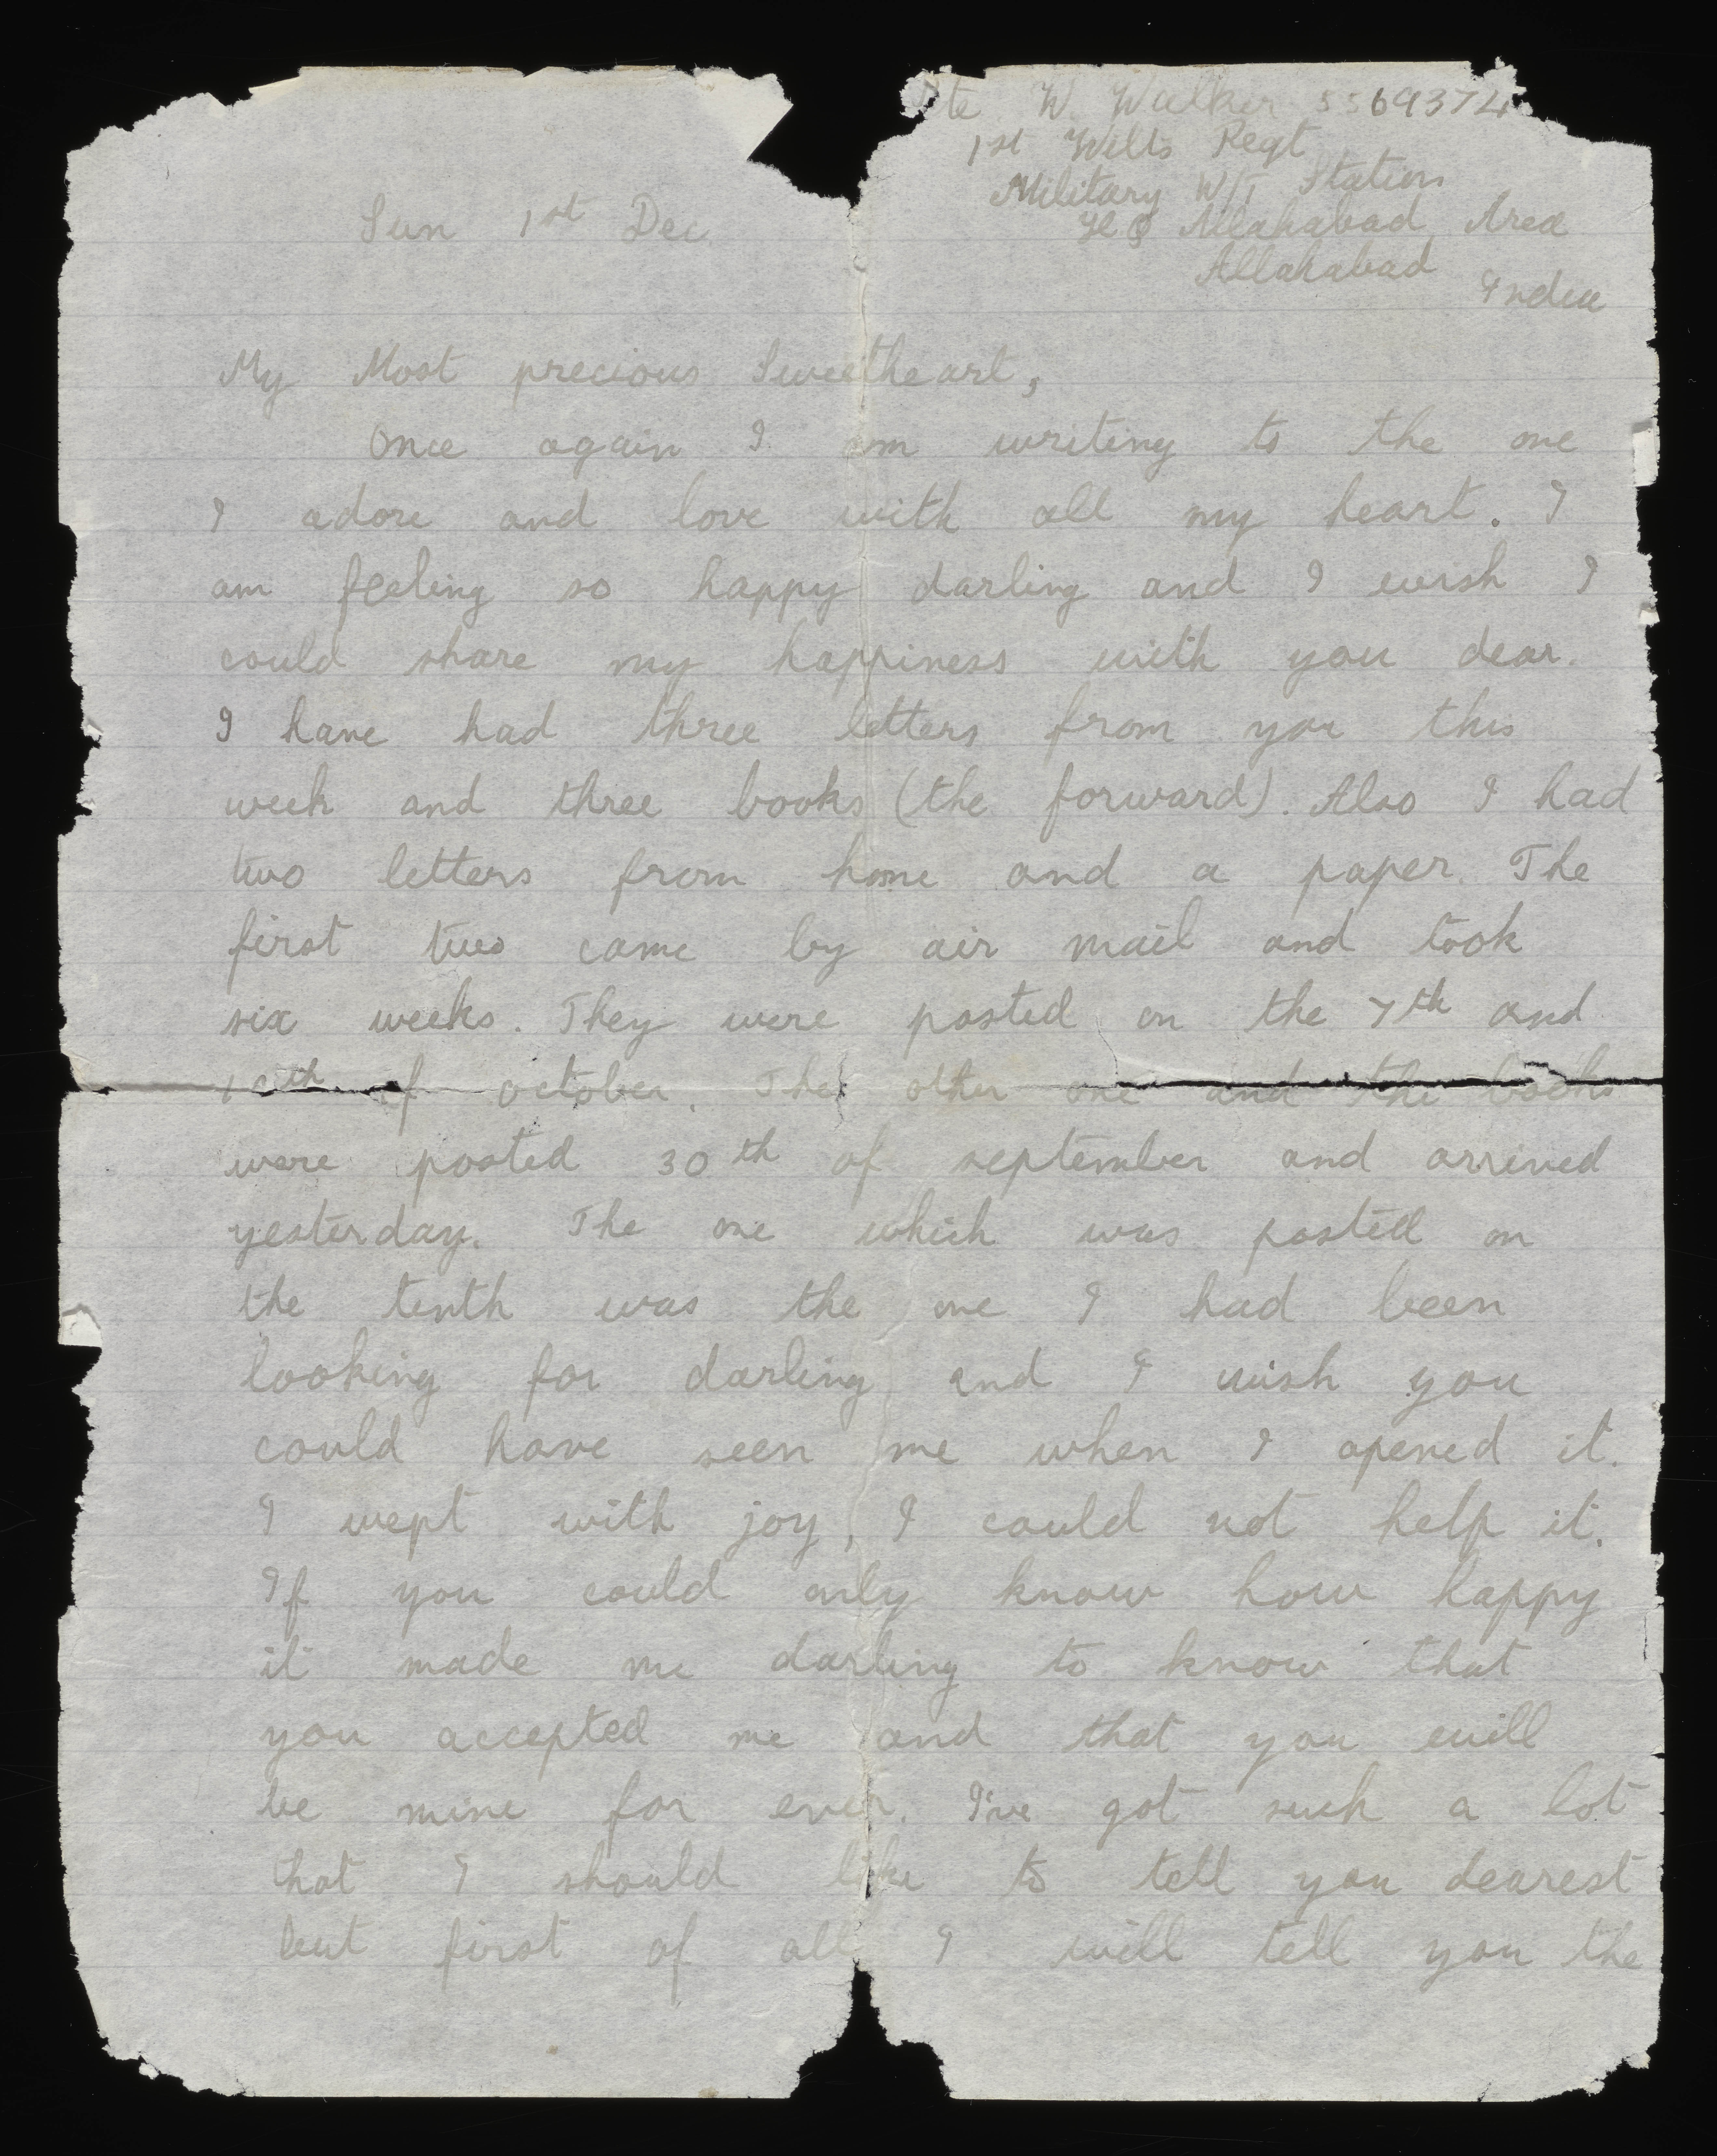 Pte W. Walker 5569374
1st Wilts Regt
Military W/T Station
Sun 1st Dec
HQ Allahabad Area
Allahabad
India
My Most precious Sweetheart,
Once again I am writing to the one
I adore and love with all my heart. I
am feeling so happy darling and I wish I
could share my happiness with you dear.
I have had three letters from you this
week and three books (the forward). Also I had
two letters from home and a paper. The
first two came by air mail and took
six weeks. They were posted on the 7th and
10th of october. The other one and the books
were posted 30th of september and arrived
yesterday. The one which was posted on
the tenth was the one I had been
looking for darling and I wish you
could have seen me when I opened it.
I wept with joy, I could not help it.
If you could only know how happy
it made me darling to know that
you accepted me and that you will
be mine for ever. I've got such a lot
that I should like to tell you dearest
but first of all I will tell you the